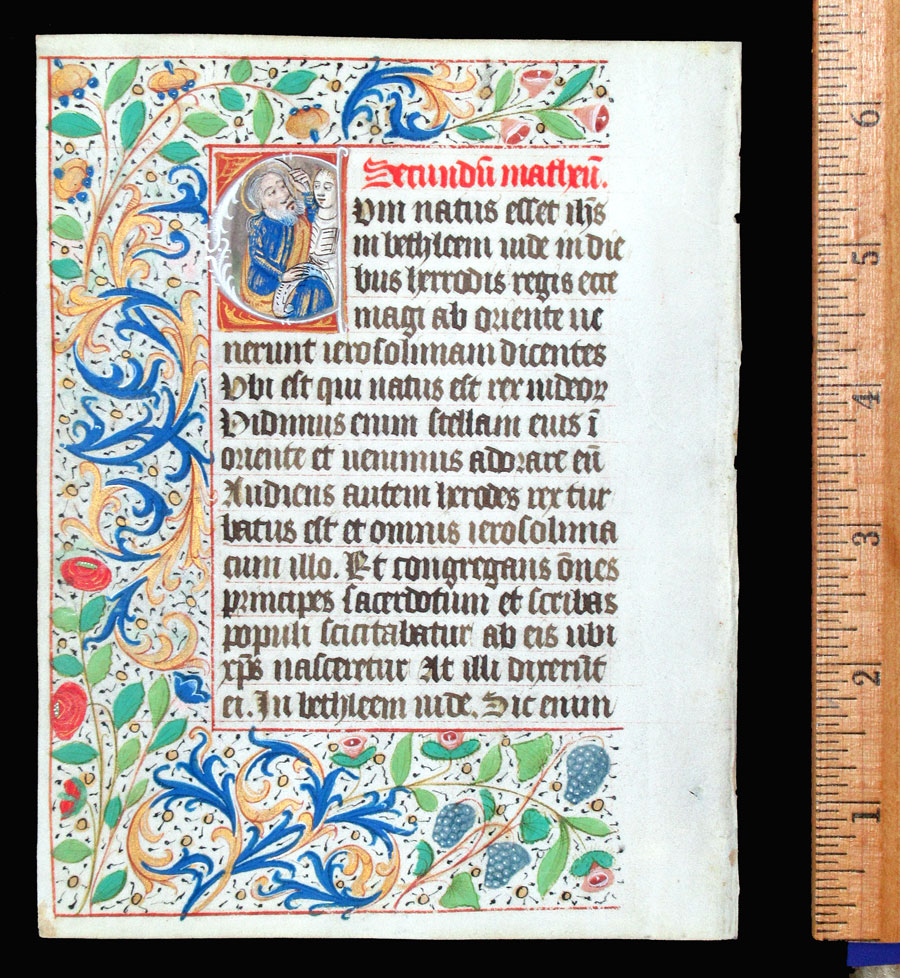 Secundū matheū.
Cum natus esset ihs̄
in bethleem iude in die
bus herrodis regis ecce
magi ab oriente ue
nerunt ierosolimam dicentes
Vbi est qui natus est rex iudeoꝝ
Vidimus enim stellam eius ī
oriente et uenimus adorare eū
Audiens autem herodes rex tur
batus est et omnis ierosolima
cum illo. Et congregans ōnes
principes sacerdotum et scribas
populi scicitabatur ab eis ubi
xp̄s nasceretur At illi dixerūt
ei. In bethleem iude. Sic enim
6
5
4
3
2
1